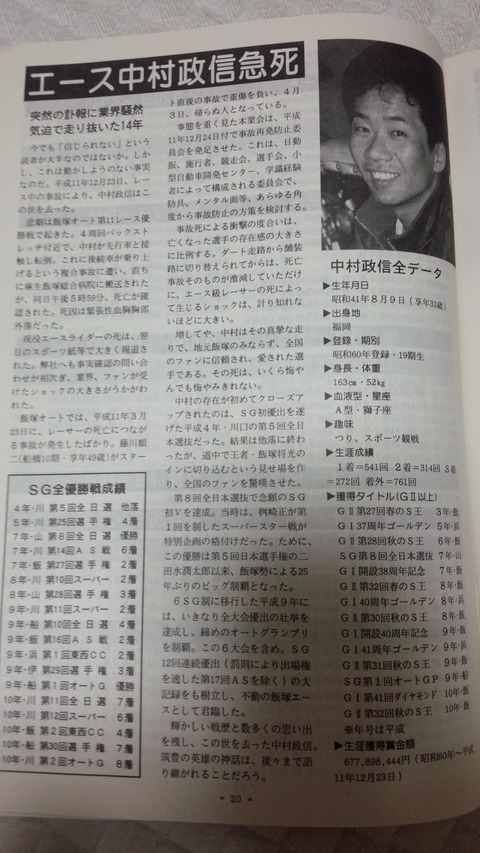 エース中村政信急死
突然の訃報に業界騒然
気迫で走り抜いた14年
今でも「信じられない」という
読者が大半なのではないか。しか
し、これは動かしようのない事実
なのだ。平成11年12月23日、レー
ス中の事故により、中村政信はこ
の世を去った。
悲劇は飯塚オート第11レース優
勝戦で起きた。4周回バックスト
レッチ付近で、中村が先行車と接
触し転倒。これに後続車が乗り上
げるという複合事故に遭い、直ち
に麻生飯塚総合病院に搬送された
が、同日午後5時59分、死亡が確
認された。死因は緊張性血胸胸部
外傷だった。
現役エースライダーの死は、翌
日のスポーツ紙等で大きく報道さ
れた。弊社へも事実確認の問い合
わせが相次ぎ、業界、ファンが受
けたショックの大きさがうかがわ
れた。
飯塚オートでは、平成11年3月
23日に、レーサーの死亡につなが
る事故が発生したばかり。藤川順
二(船橋10期・享年49歳)がスター
ト直後の事故で重傷を負い、4月
3日、帰らぬ人となっている。
事態を重く見た本業会は、平成
11年12月24日付で事故再発防止委
員会を発足させた。これは、日動
振、施行者、競走会、選手会、小
型自動車開発センター、学識経験
者によって構成される委員会で、
防具、メンタル面等、あらゆる角
度から事故防止の方策を検討する。
事故死による衝撃の度合いは、
亡くなった選手の存在感の大きさ
に比例する。ダート走路から舗装
路に切り替えられてからは、死亡
事故そのものが激減していただけ
に、エース級レーサーの死によっ
て生じるショックは、計り知れな
いほどに大きい。
増してや、中村はその真摯な走
りで、地元飯塚のみならず、全国
のファンに信頼され、愛された選
手である。その死は、いくら悔や
んでも悔やみきれない。
中村の存在が初めてクローズア
ップされたのは、SG初優出を遂
げた平成4年・川口の第5回全日
本選抜だった。結果は他落に終わ
ったが、道中で王者・飯塚将光の
インに切り込むという見せ場を作
り、全国のファンを驚嘆させた。
第8回全日本選抜で念願のSG
初Vを達成。当時は、桝崎正が第
1回を制したスーパースター戦が
特別企画の格付けだった。ために、
この優勝は第5回日本選手権の二
田水潤太郎以来、飯塚勢による25
年ぶりのビッグ制覇となった。
6SG制に移行した平成9年に
は、いきなり全大会優出の壮挙を
達成し、締めのオートグランプリ
を制覇。この6大会を含め、SG
12回連続優出(罰則により出場権
を逸した第17回ASを除く)の大
記録をも樹立し、不動の飯塚エー
スとして君臨した。
輝かしい戦歴と数多くの思い出
を残し、この世を去った中村政信。
筑豊の英雄の神話は、後々まで語
り継がれることだろう。
SG全優勝戦成績
4年・川 第5回全日選 他落
5年・川 第25回選手権 4着
7年・山 第8回全日選 優勝
7年・川 第14回AS 6着
7年・飯 第27回選手権 2着
8年・川 第10回スーパー 2着
8年・山 第28回選手権 3着
9年・川 第11回スーパー 2着
9年・船 第10回全日選 4着
9年・飯 第16回AS 2着
9年・浜 第1回東西CC 2着
9年・伊 第29回選手権 3着
9年・船 第1回オートG 優勝
10年・川 第11回全日選 7着
10年・川 第12回スーパー 6着
10年・飯 第2回東西CC 4着
10年・船 第30回選手権 7着
10年・川 第2回オートG 8着
中村政信全データ
▶生年月日
昭和41年8月9日(享年33歳)
▶出身地
福岡
▶登録・期別
昭和60年登録・19期生
▶身長・体重
163cm・52kg
▶血液型・星座
A型・獅子座
▶趣味
つり、スポーツ観戦
▶生涯成績
1着=541回 2着=314回 3着
=272回 着外=761回
▶獲得タイトル(GⅡ以上)
GⅡ第27回春のS王 3年・飯
GⅠ37周年ゴールデン 5年・浜
GⅡ第28回秋のS王 6年・飯
SG第8回全日本選抜 7年・山
GⅠ開設38周年記念 7年・飯
GⅡ第32回春のS王 8年・飯
GⅠ40周年ゴールデン 8年・浜
GⅡ第30回秋のS王 8年・飯
GⅠ開設40周年記念 9年・飯
GⅠ41周年ゴールデン 9年・浜
GⅡ第31回秋のS王 9年・飯
SG第1回オートGP 9年・船
GⅠ第41回ダイヤモンド 10年・飯
GⅡ第32回秋のS王 10年・飯
※年号は平成
▶生涯獲得賞金額
677,898,444円(昭和60年〜平成
11年12月23日)
- 20 -